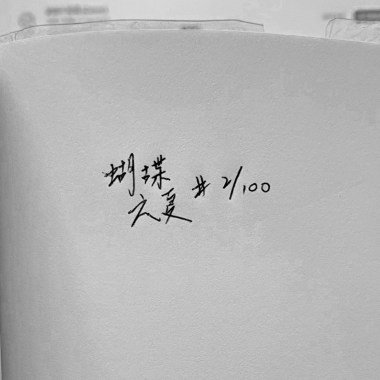 蝴蝶
六夏 # 2/100